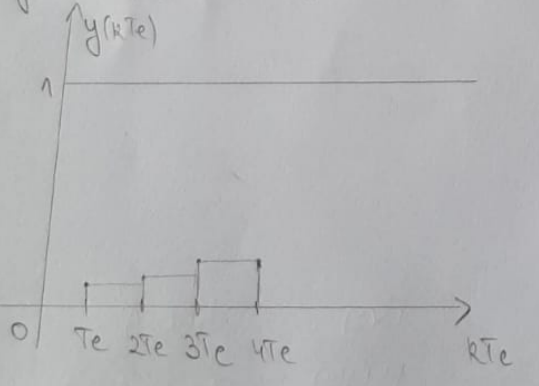 y(kTe)
1
0 Te 2Te 3Te 4Te kTe